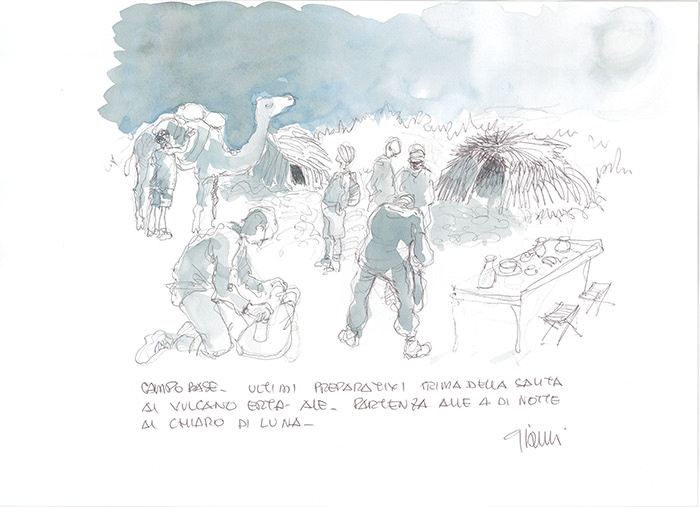 CAMPO BASE_ ULTIMI PREPARATIVI PRIMA DELLA SALITA
AL VULCANO ERTA-ALE_ PARTENZA ALLE 4 DI NOTTE
AL CHIARO DI LUNA_
Gianni